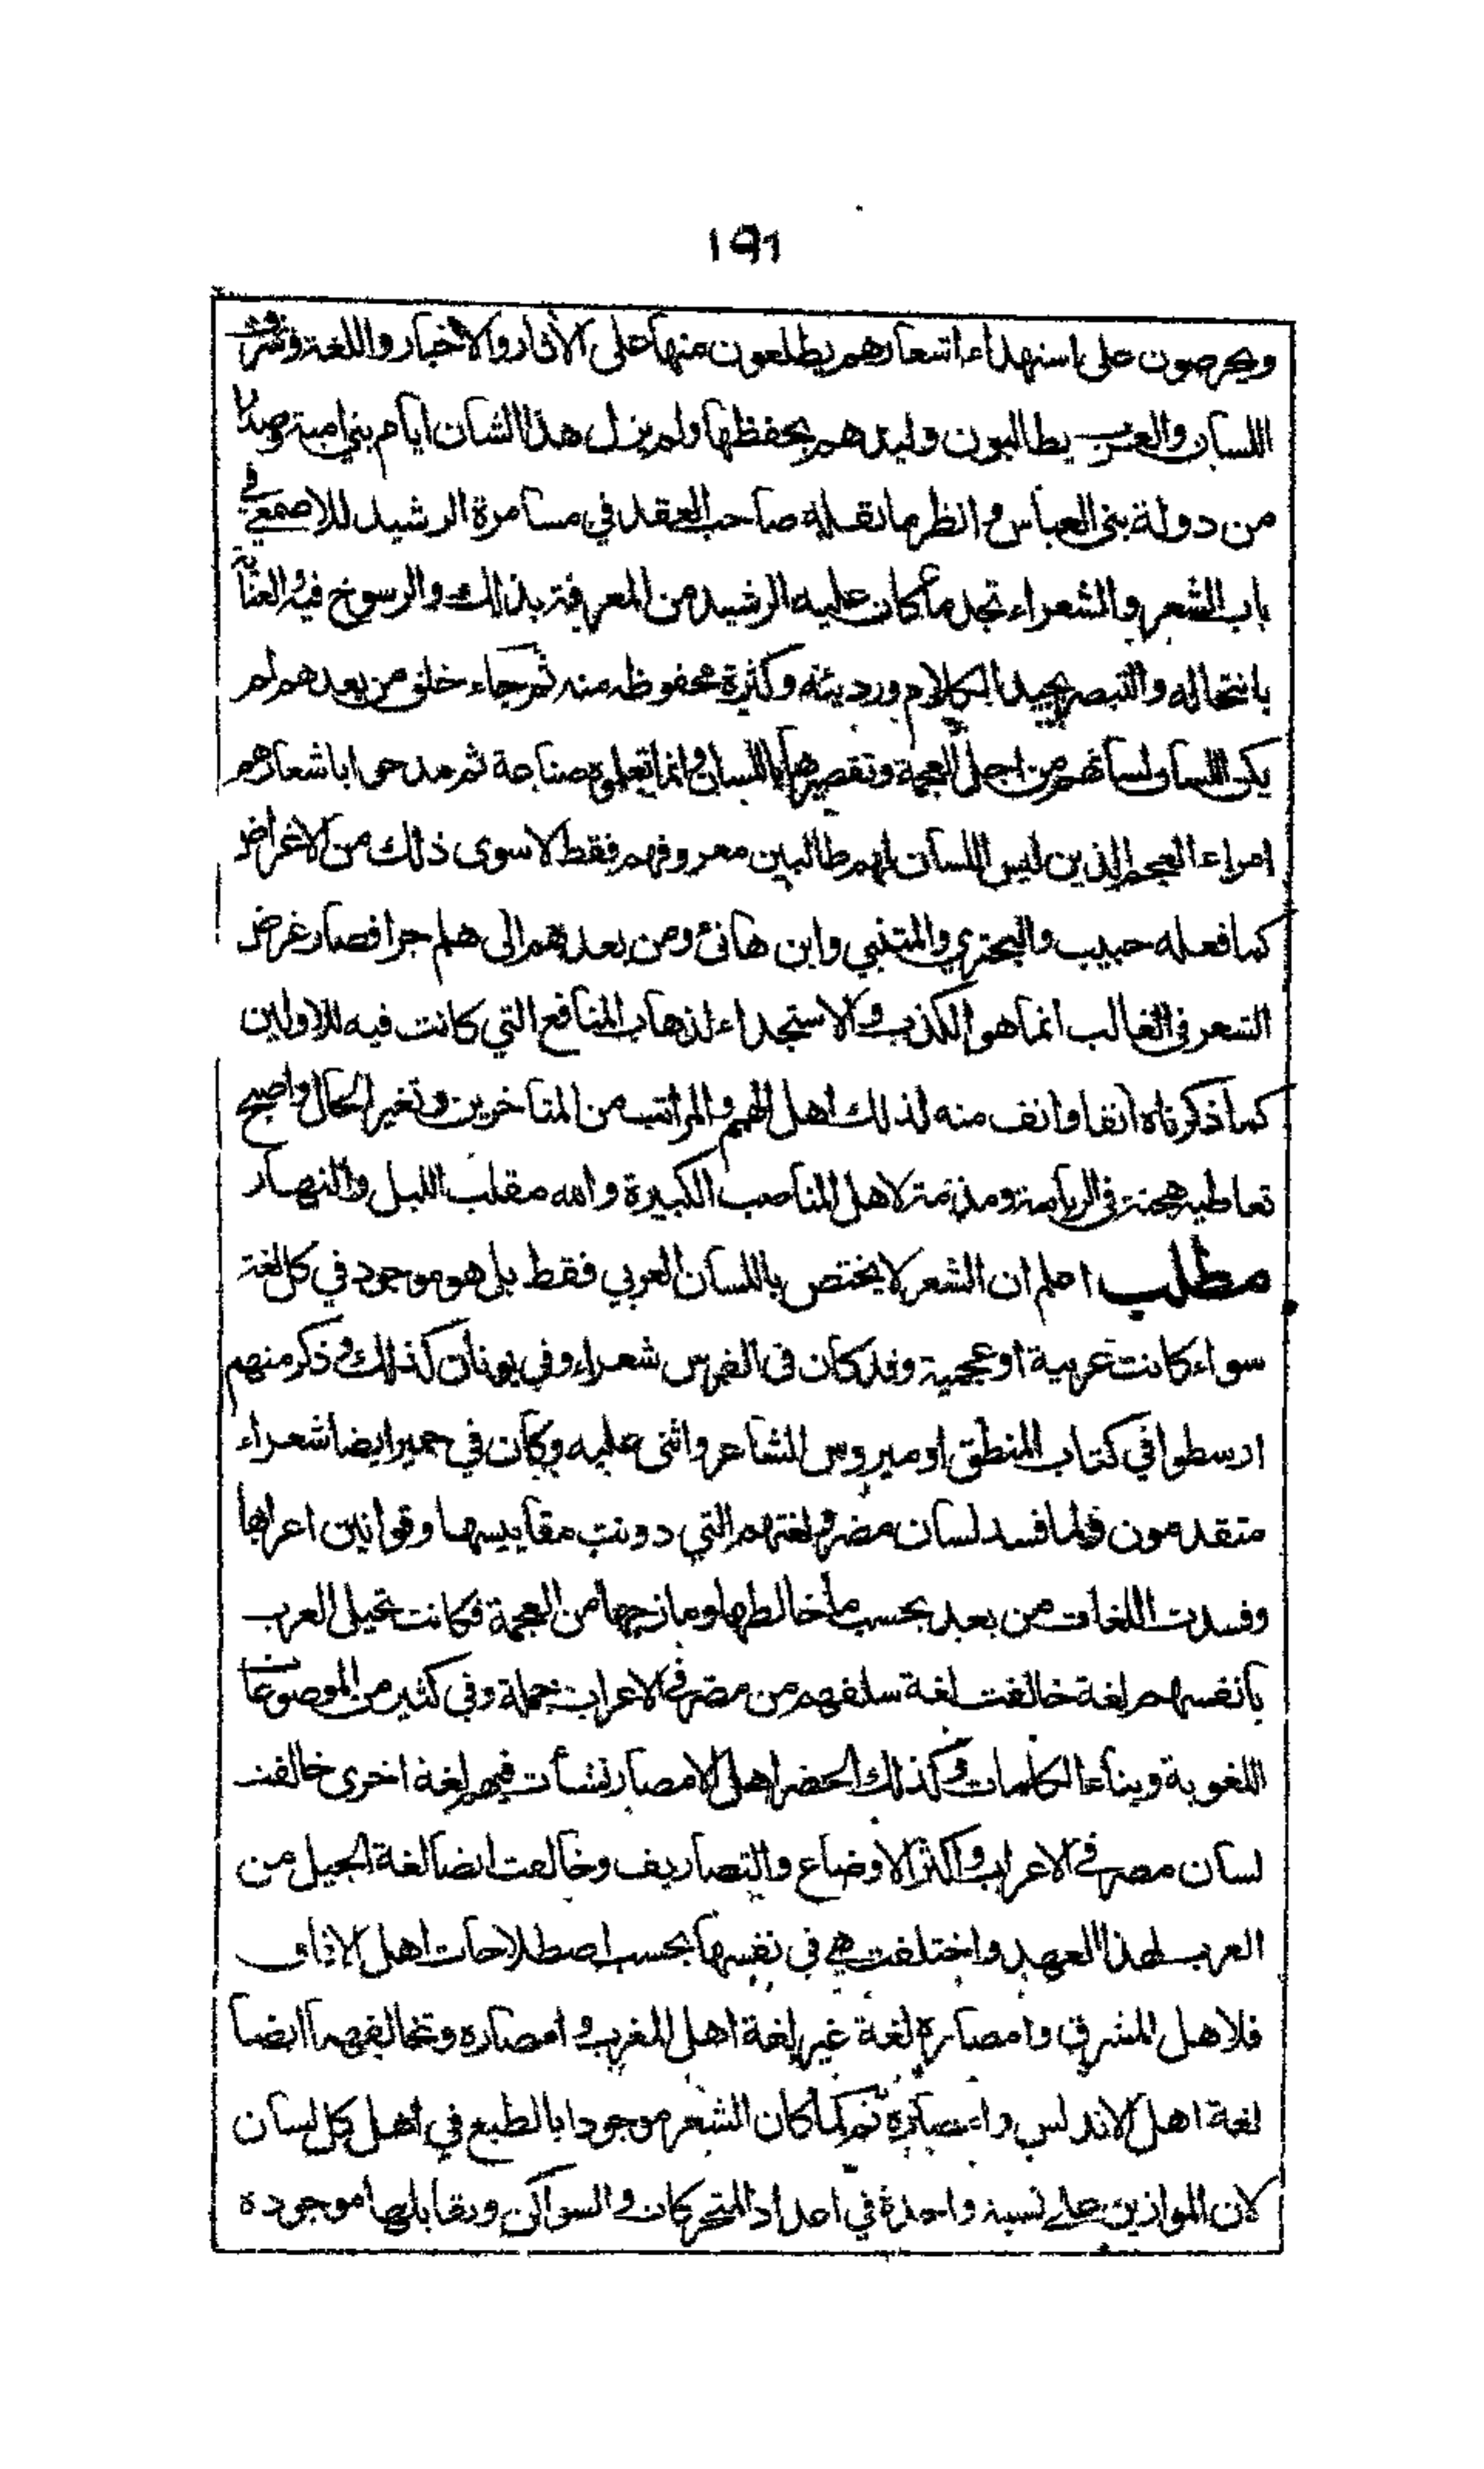 ١٩٦
ويحرصون على استهداء اشعارهم يطلعون منها على الآثار والاخبار واللغة وشرف
اللسان والعرب يطالبون وليدهم بحفظها ولم يزل هذا الشان ايام بني امية وصدرا
من دولة بني العباس وانظر ما نقله صاحب العقد في مسامرة الرشيد للاصمعي في
باب الشعر والشعراء تجد ما كان عليه الرشيد من المعرفة بذلك والرسوخ فيه والعناية
بانتحاله والتبصر بجيد الكلام ورديئه وكثرة محفوظه منه ثم جاء خلق من بعدهم لم
يكن اللسان لسانهم من اجل العجمة وتقصيرها باللسان وانما تعلموه صناعة ثم مدحوا باشعارهم
امراء العجم الذين ليس اللسان لهم طالبين معروفهم فقط لا سوى ذلك من الاغراض
كما فعله حبيب والبحتري والمتنبي وابن هانئ ومن بعدهم الى هلم جرا فصار غرض
الشعر في الغالب انما هو الكذب والاستجداء لذهاب المنافع التي كانت فيه للاولين
كما ذكرناه آنفا وانف منه لذلك اهل الهمم والمراتب من المتأخرين وتغير الحال واصبح
تعاطيه هجنة في الرياسة ومذمة لاهل المناصب الكبيرة والله مقلب الليل والنهار
مطلب اعلم ان الشعر لا يختص باللسان العربي فقط بل هو موجود في كل لغة
سواء كانت عربية او عجمية وقد كان في الفرس شعراء وفي يونان كذلك وذكر منهم
ارسطو في كتاب المنطق اوميروس الشاعر واثنى عليه وكان في حمير ايضا شعراء
متقدمون ولما فسد لسان مضر ولغتهم التي دونت مقاييسها وقوانين اعرابها
وفسدت اللغات من بعد بحسب ما خالطها ومازجها من العجمة فكانت تحيل العرب
بانفسهم لغة خالفت لغة سلفهم من مضر في الاعراب جملة وفي كثير من الموضوعات
اللغوية وبناء الكلمات وكذلك الحضر اهل الامصار نشأت فيهم لغة اخرى خالفت
لسان مضر في الاعراب واكثر الاوضاع والتصاريف وخالفت ايضا لغة الجيل من
العرب لهذا العهد واختلفت هي في نفسها بحسب اصطلاحات اهل الآفاق
فلاهل المشرق وامصاره لغة غير لغة اهل المغرب وامصاره وتخالفهما ايضا
لغة اهل الاندلس وامصاره ثم كما كان الشعر موجودا بالطبع في اهل كل لسان
لان الموازين على نسبة واحدة في اعداد المتحركات والسواكن وتقابلها موجودة